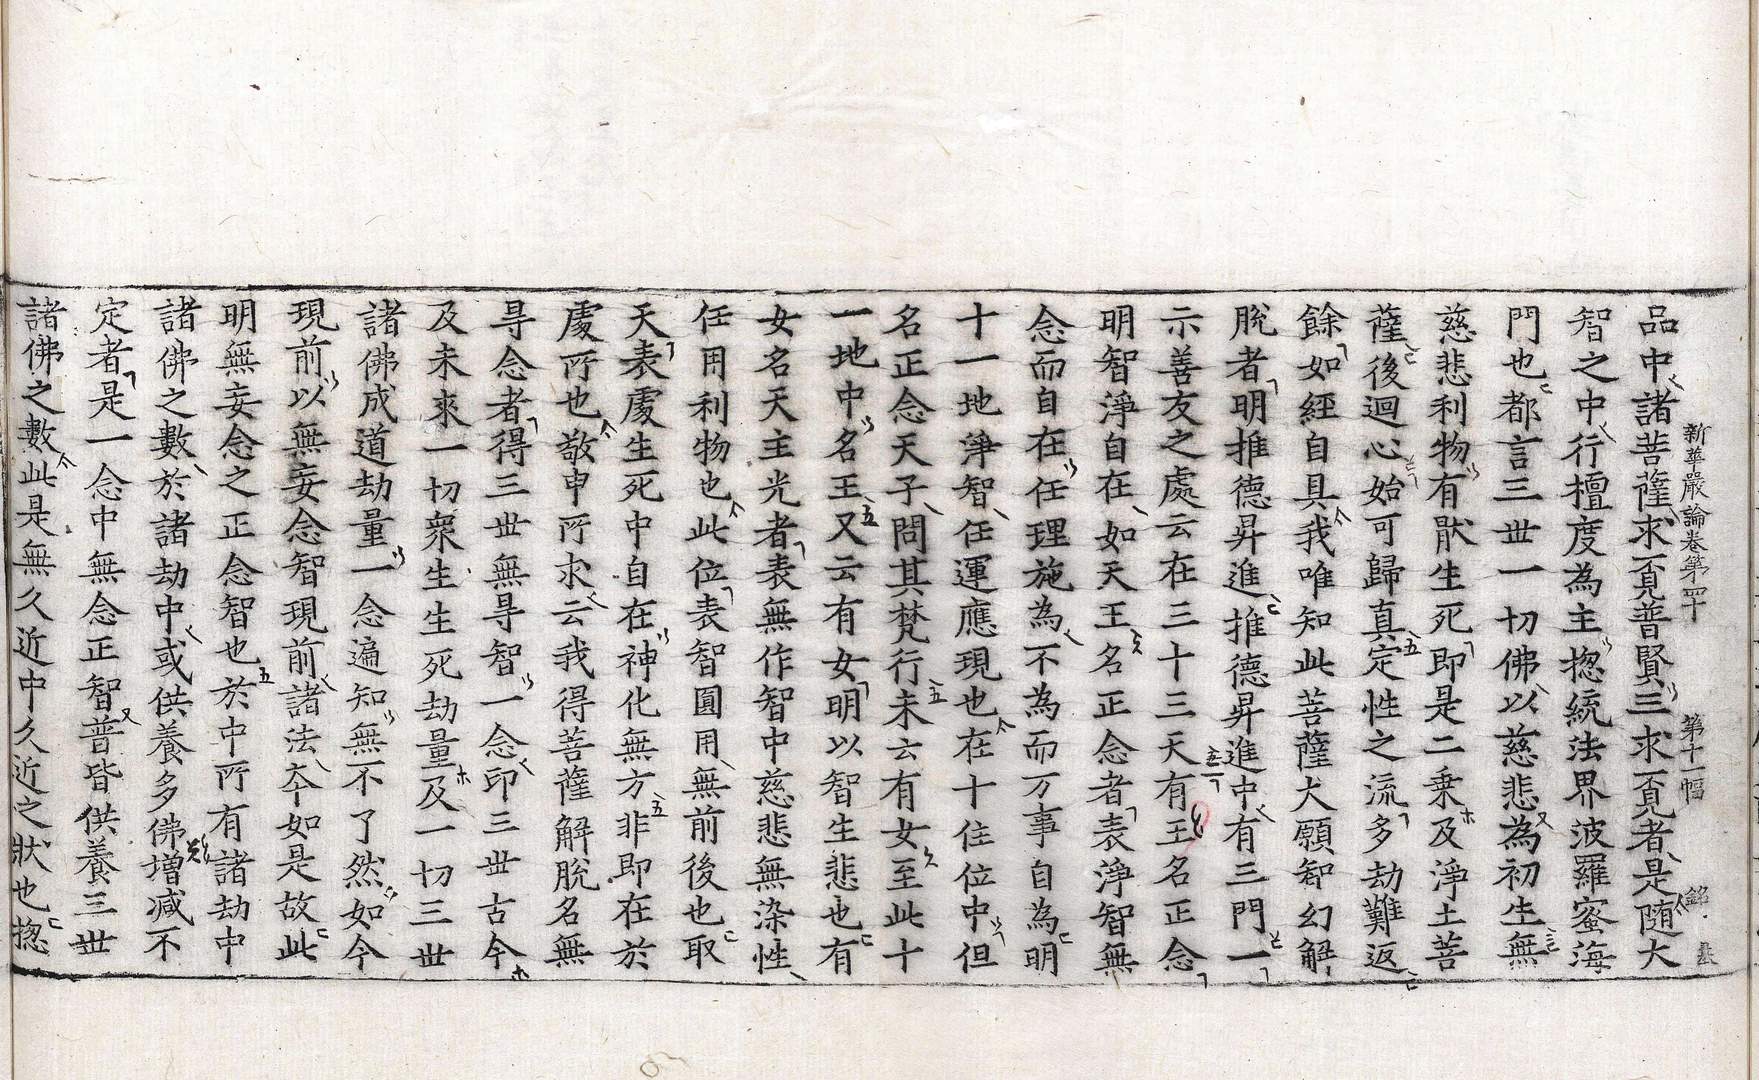 新華嚴論卷第四十 第十一幅 銘
品中諸菩薩求覔普賢三求覔者是随大
智之中行檀度為主揔統法界波羅蜜海
門也都言三世一切佛以慈悲為初生無
慈悲利物有猒生死即是二乗及淨土菩
薩後迴心始可歸真定性之流多劫難返
餘如經自具我唯知此菩薩大願智幻解
脫者明推德昇進推德昇進中有三門一
示善友之處云在三十三天有王名正念
明智淨自在如天王名正念者表淨智無
念而自在任理施為不為而万事自為明
十一地淨智任運應現也在十住位中但
名正念天子問其梵行未云有女至此十
一地中名王又云有女明以智生悲也有
女名天主光者表無作智中慈悲無染性
任用利物也此位表智圓用無前後也取
天表處生死中自在神化無方非即在於
處所也敬申所求云我得菩薩解脫名無
㝵念者得三世無㝵智一念印三世古今
及未來一切衆生生死劫量及一切三世
諸佛成道劫量一念遍知無不了然如今
現前以無妄念智現前諸法夲如是故此
明無妄念之正念智也於中所有諸劫中
諸佛之數於諸劫中或供養多佛增減不
定者是一念中無念正智普皆供養三世
諸佛之數此是無久近中久近之狀也揔